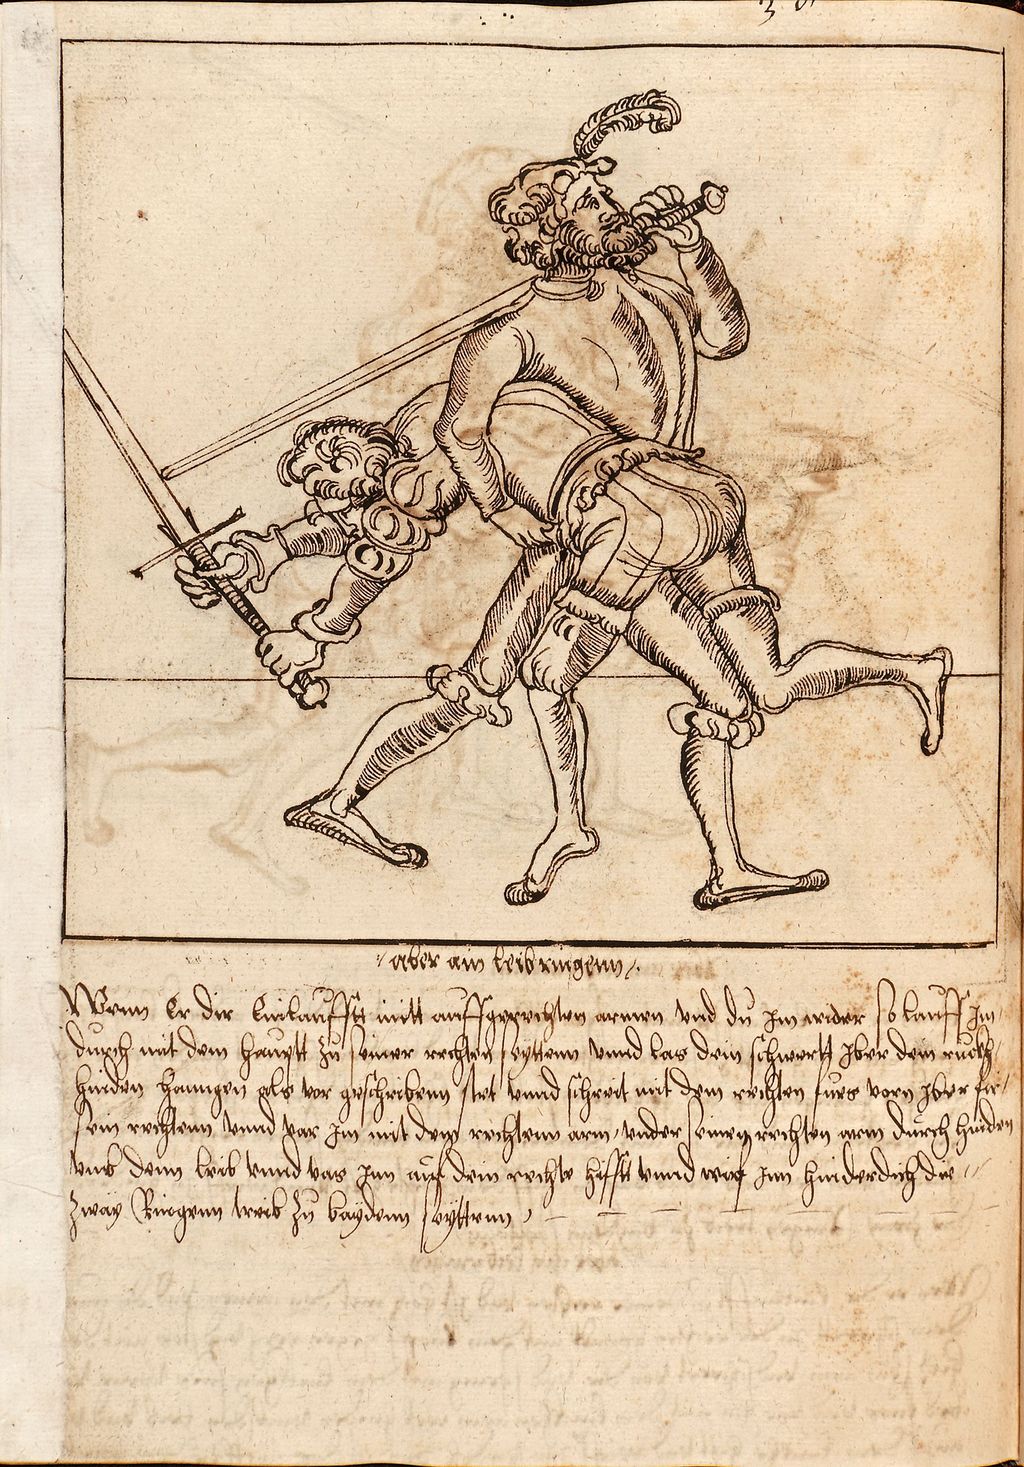 aber ain leibringenn
Wenn Er dir Einlaufft mitt auffgerechten armen vnd du Im wider so lauff Im
durch mit dem hauptt zu seiner rechten seyttenn vnnd las dein schwertt Iber dein ruckh
hinden hanngen als vor geschribenn stet vnnd schreit mit dem rechten fues vorn Iber fir
sein rechtenn vnnd var Im mit dem rechtenn arm vnder seinem rechten arm durch hinden
vmb denn leib vnnd vas Inn auf dein rechte hifft vnnd wirf Inn hinderdich die
zway Ringenn treib zu baydenn seyttenn